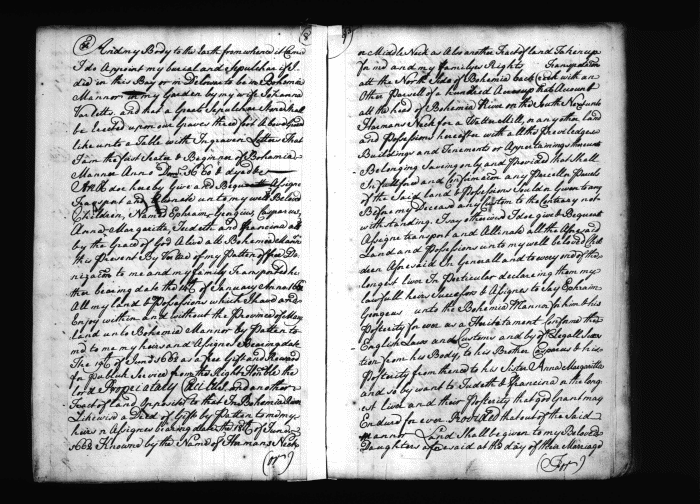 And my Body to the Earth from whence it Came
I do Appoint my burial and Sepulcher if I
died in this Bay or in Delawar to be in Bohemia
Mannor in my Garden by my wife Johanna
Varletts and that a Great Sepulcher Stone shall
be Erected upon our Graves three foot above Ground
like unto a Table with Ingraven Letters That
I am the first Seater & Beginner of Bohemia
Manner Anno Dom: 1660 & dyed
doe hereby Give and Bequeath Assigne
Transport and unto my well Beloved
Children, Named Ephraim, Georgius Casparus,
Anna Margaritta Judeth and Francina all
by the Grace of God Alive all Bohemia Mannor
this Present By Vertue of my Patten of free
to me and my family Transported
bearing date the of January Anno
All my land & Possessions which I have and
Enjoy within and without the Province of
land unto Bohemia Mannor by Patten to
me to my heirs and Assignes Bearing date
The 19th of June 1662 as a free Gift and Reward
for Publick Service from the Right Honble the
lord Propriatary and another
Tract of land Opposited to that In Bohemia River
Likewise a Deed of Gift by Patten to me my
heirs & Assignes bearing date the 19th of June
1662 Knowned by the Name of Hermans Neck
(or)
or Middle Neck as Also another Tract of land Taken up
for me and my familyes Rights Transported in
att the North Side of Bohemia back Creek with an
Other Parcell of a hundred Acres
att the head of Bohemia River on the South
Hermans Neck for a Water Mill, or any other land
and Possessions hereafter with all the Priviledges
Buildings and Tenements or Appertainings Amounts
Belonging Saving only and Provided that shall
In full fored and any Parcell or Parcels
of the Said land & Possessions Sould or Given to any
Before my Decease any Custom to the Contrary not
withstanding. I say otherwise I doe give & Bequeath
Assigne transport and all the Aforesaid
Land and Possessions unto my well beloved
Aforesaid In Generall and to every one of the
longest liver In Perticular declaring them my
lawfull heirs Successors & Assignes to say Ephraim
Georgius unto the Bohemia Mannor for him & his
Posterity for ever as a Conforme the
English Laws and Customs and by of Legall
from his Body, to his Brother Casparus & his
Posterity from thence to his Sister Anna Margaritta
and so by want to Judeth & Francina or the
liver and their Posterity that God Grant may
Endure for ever Provided that out of the Said
Mannor Land shall be given to my Beloved
Daughters aforesaid at the day of their Marriage
(For)